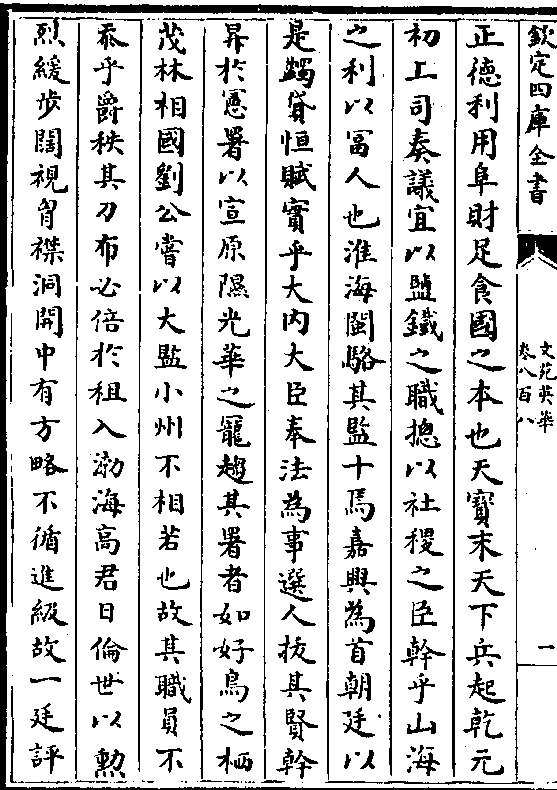 欽定四庫全書
文苑英華
卷八百八
一
正德利用阜財足食國之本也天寳末天下兵起乾元
初上司奏議宜以鹽鐵之職摠以社稷之臣幹乎山海
之利以冨人也淮海閩駱其監十焉嘉興為首朝廷以
是蠲貸恒賦實乎大內大臣奉法為事選人抜其賢幹
昇於憲署以宣原隰光華之寵趨其署者如好鳥之栖
茂林相國劉公嘗以大監小州不相若也故其職員不
忝乎爵秩其刀布必倍於租入渤海高君日倫世以勲
烈緩步闊視胷襟洞開中有方略不循進級故一廷評